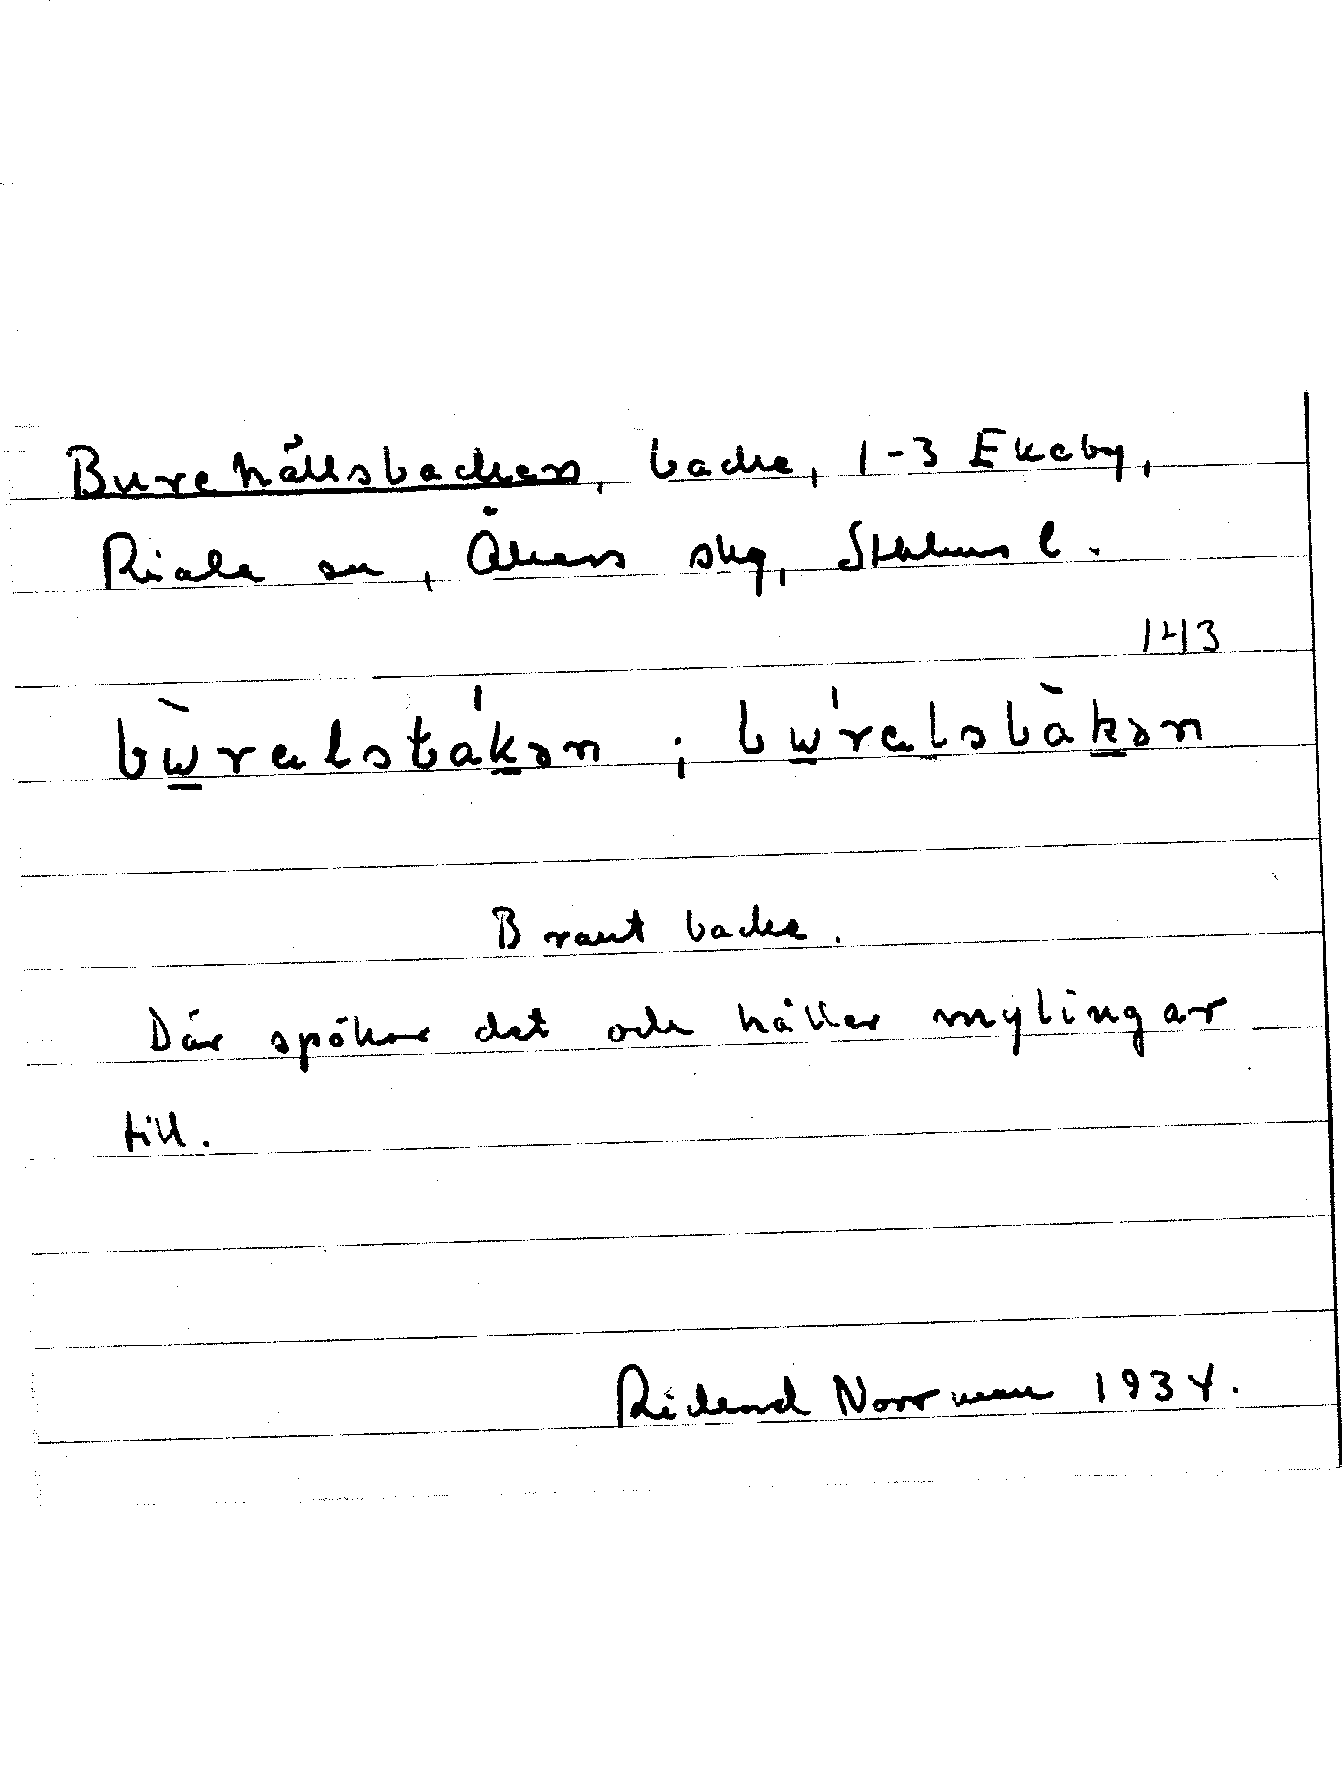 Burehällsbacken, backe, 1-3 Ekeby,
Riala sn, Åkers skg, Sthlms l.
143
bẁrælstákən ; bẃrælsbàkən
Brant backe.
Där spökar det och håller mylingar
till.
Rickard Norrman 1934.